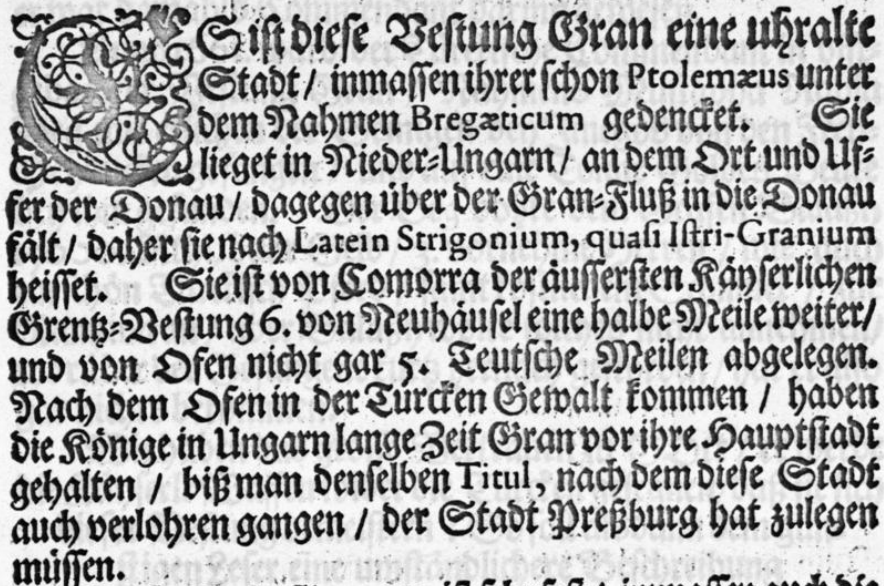 ES ist diese Vestung Gran eine uhralte
Stadt / inmassen ihrer schon Ptolemæus unter
dem Nahmen Bregæticum gedencket. Sie
lieget in Nieder-Ungarn / an dem Ort und Uf-
fer der Donau / dagegen über der Gran-Fluß in die Donau
fält / daher sie nach Latein Strigonium, quasi Istri-Granium
heisset. Sie ist von Comorra der äussersten Käyserlichen
Grentz-Vestung 6. von Neuhäusel eine halbe Meile weiter /
und von Ofen nicht gar 5. Teutsche Meilen abgelegen.
Nach dem Ofen in der Türcken Gewalt kommen / haben
die Könige in Ungarn lange Zeit Gran vor ihre Hauptstadt
gehalten / biß man denselben Titul, nach dem diese Stadt
auch verlohren gangen / der Stadt Preßburg hat zulegen
müssen.